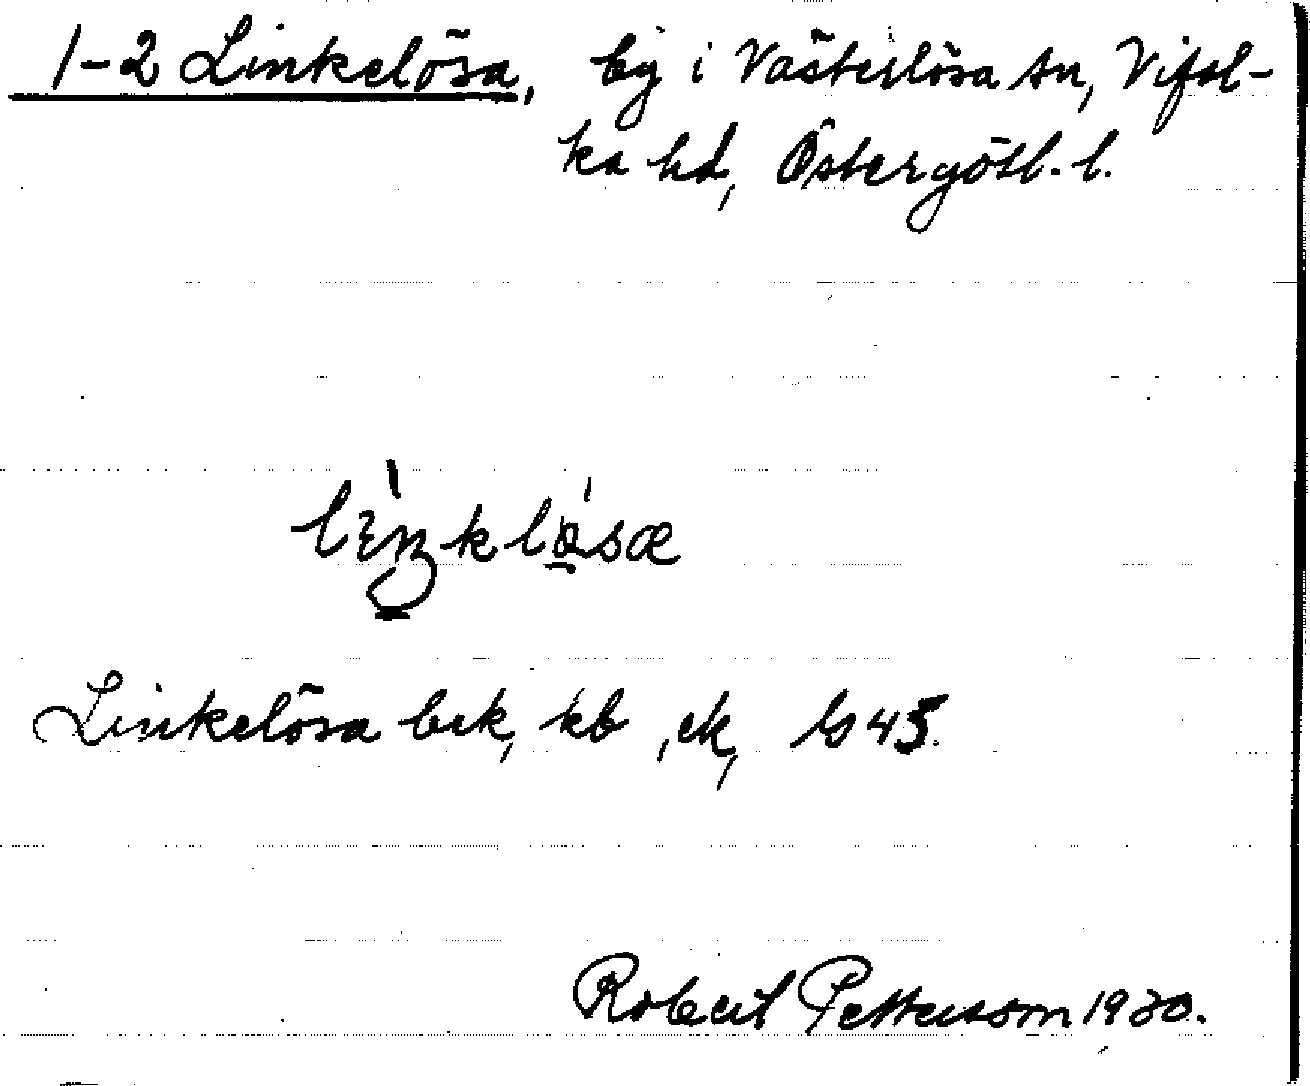 1-2 Linkelösa, by i Västerlösa sn, Vifol-
ka hd, Östergötl. l.
Linkelösa bek, kb, ek, G 45.
Robert Pettersson 1930.